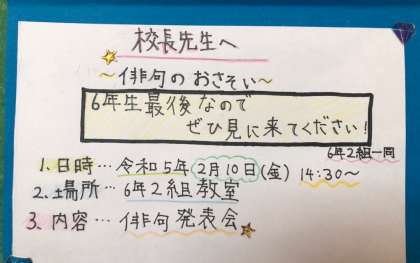 校長先生へ
～俳句のおさそい～
6年生最後なので
ぜひ見に来てください！
6年2組一同
1.日時…令和5年2月10日(金) 14:30～
2.場所…6年2組教室
3.内容…俳句発表会